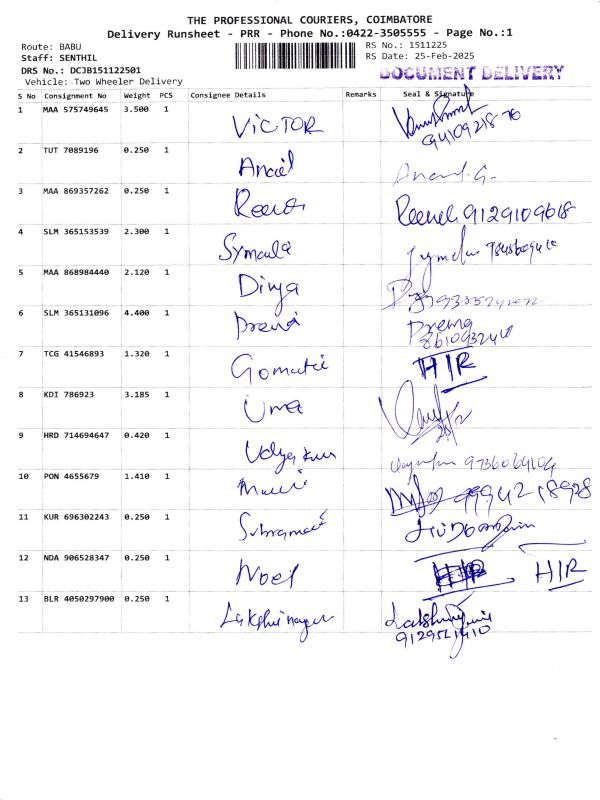 THE PROFESSIONAL COURIERS, COIMBATORE
Delivery Runsheet - PRR - Phone No.:0422-3505555 - Page No.:1
Route: BABU RS No.: 1511225
Staff: SENTHIL RS Date: 25-Feb-2025
DRS No.: DCJB151122501 DOCUMENT DELIVERY
Vehicle: Two Wheeler Delivery
S No Consignment No Weight PCS Consignee Details Remarks Seal & Signature
1 MAA 575749645 3.500 1 VICTOR
2 TUT 7089196 0.250 1 Anand. G.
3 MAA 869357262 0.250 1 Reena 9129109618
4 SLM 365153539 2.300 1
5 MAA 868984440 2.120 1 Divya
6 SLM 365131096 4.400 1 Prema Prema
8610932410
7 TCG 41546893 1.320 1 Gomathi HIR
8 KDI 786923 3.185 1 Uma
9 HRD 714694647 0.420 1 9736064104
10 PON 4655679 1.410 1 9994218928
11 KUR 696302243 0.250 1
12 NDA 906528347 0.250 1 Noel HIR HIR
13 BLR 4050297900 0.250 1